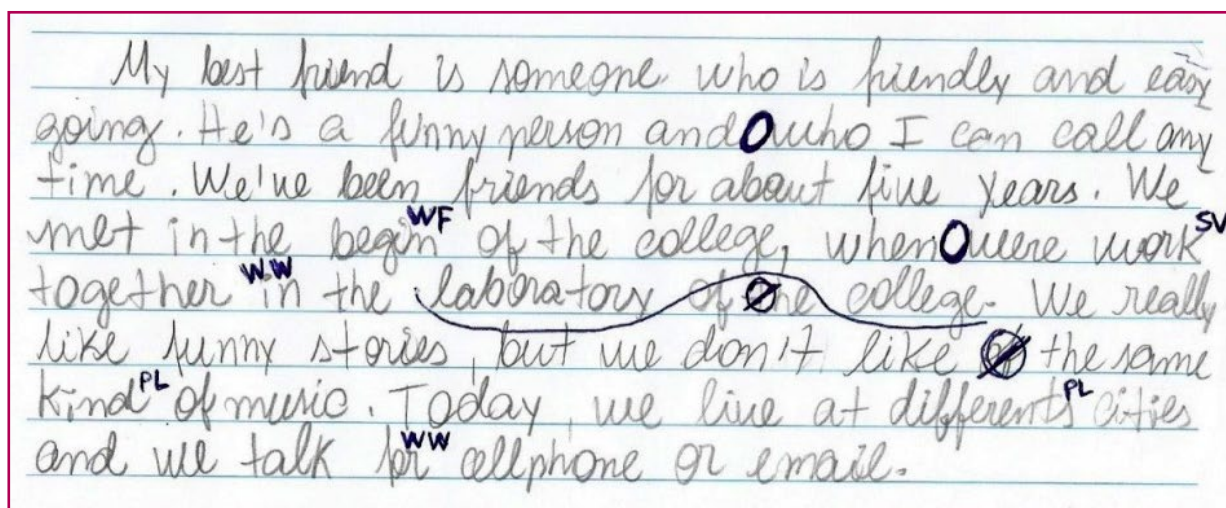 My best friend is someone who is friendly and easy
going. He's a funny person and O who I can call any
time. We've been friends for about five years. We
met in the begin WF of the college, when O were work SV
together WW in the laboratory of the college. We really
like funny stories, but we don't like of the same
kind PL of music. Today, we live at differents PL cities
and we talk for WW cellphone or email.